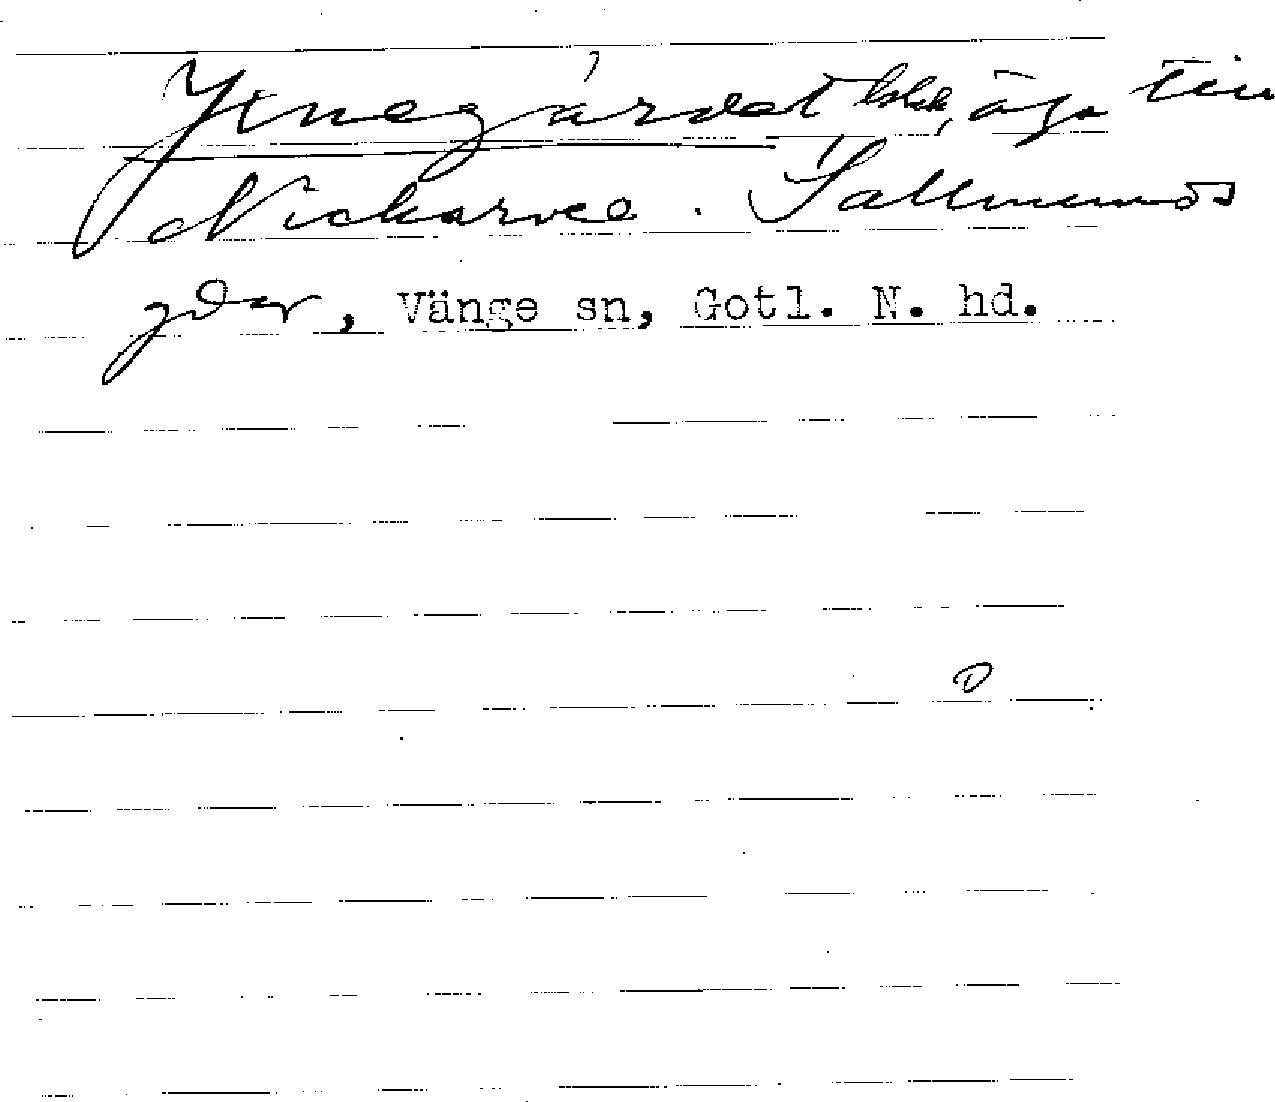 Ytnegärdet äga till
Nickarve. Sallmunds
gdar, Vänge sn, Gotl. N. hd.